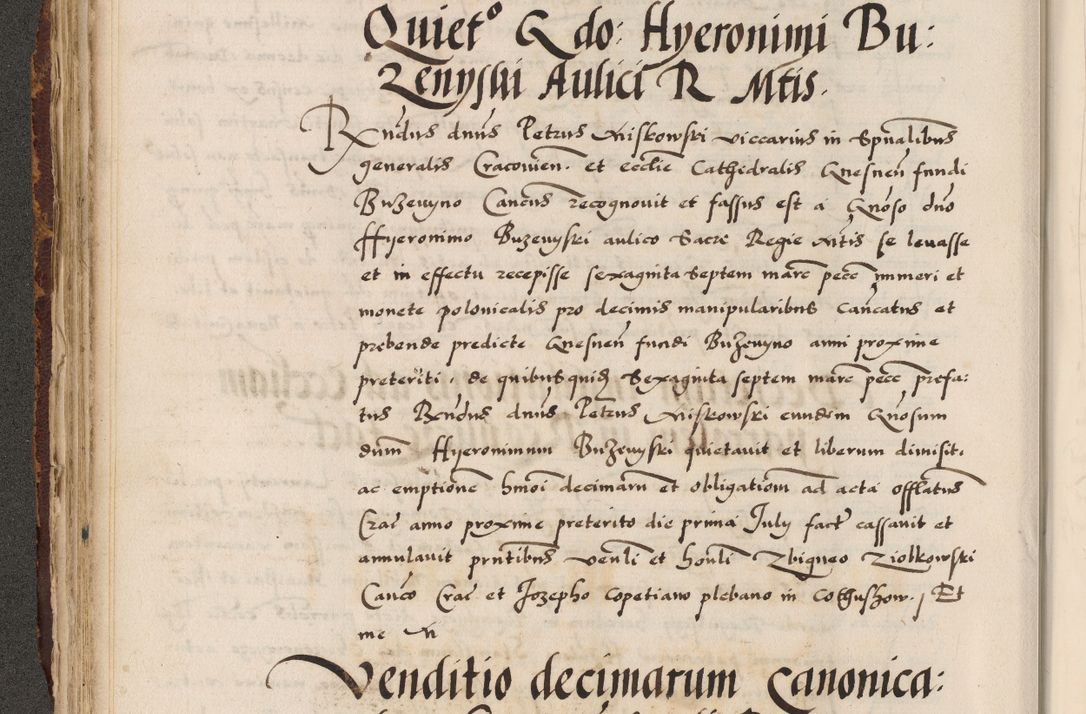 Quietº G do: Hyeronimi Bu:
zenyski Aulici R Mtis.
Rndus dnus Petrus Miskowski viccarius in Spualibus
generalis Cracovien. et ecclie Cathedralis Gnesnen fundi
Buzenyno Cancus recognovit et fassus est a Gnoso dno
Hyeronimo Buzenyski aulico Sacre Regie Mtis se levasse
et in effectu recepisse sexaginta septem marc pecc numeri et
monete polonicalis pro decimis manipularibus Cancatus et
prebende predicte Gnesnen fundi Buzenyno anni proxime
preteriti. de quibusquid Sexaginta septem marc pecc prefa:
tus Rndus dnus Petrus Miskowski eundem Gnosum
dum Hyeronimum Buzenyski quietavit et liberum dimisit.
ac emptione hmoi decimaru et obligationem ad acta offlatus
Crac anno proxime preterito die prima July fact cassavit et
annulavit pntibus venli et honli Zbigneo Ziolkowski
Canco Crac et Jozepho Copetiano plebano in . Et
me M
Venditio decimarum canonica: